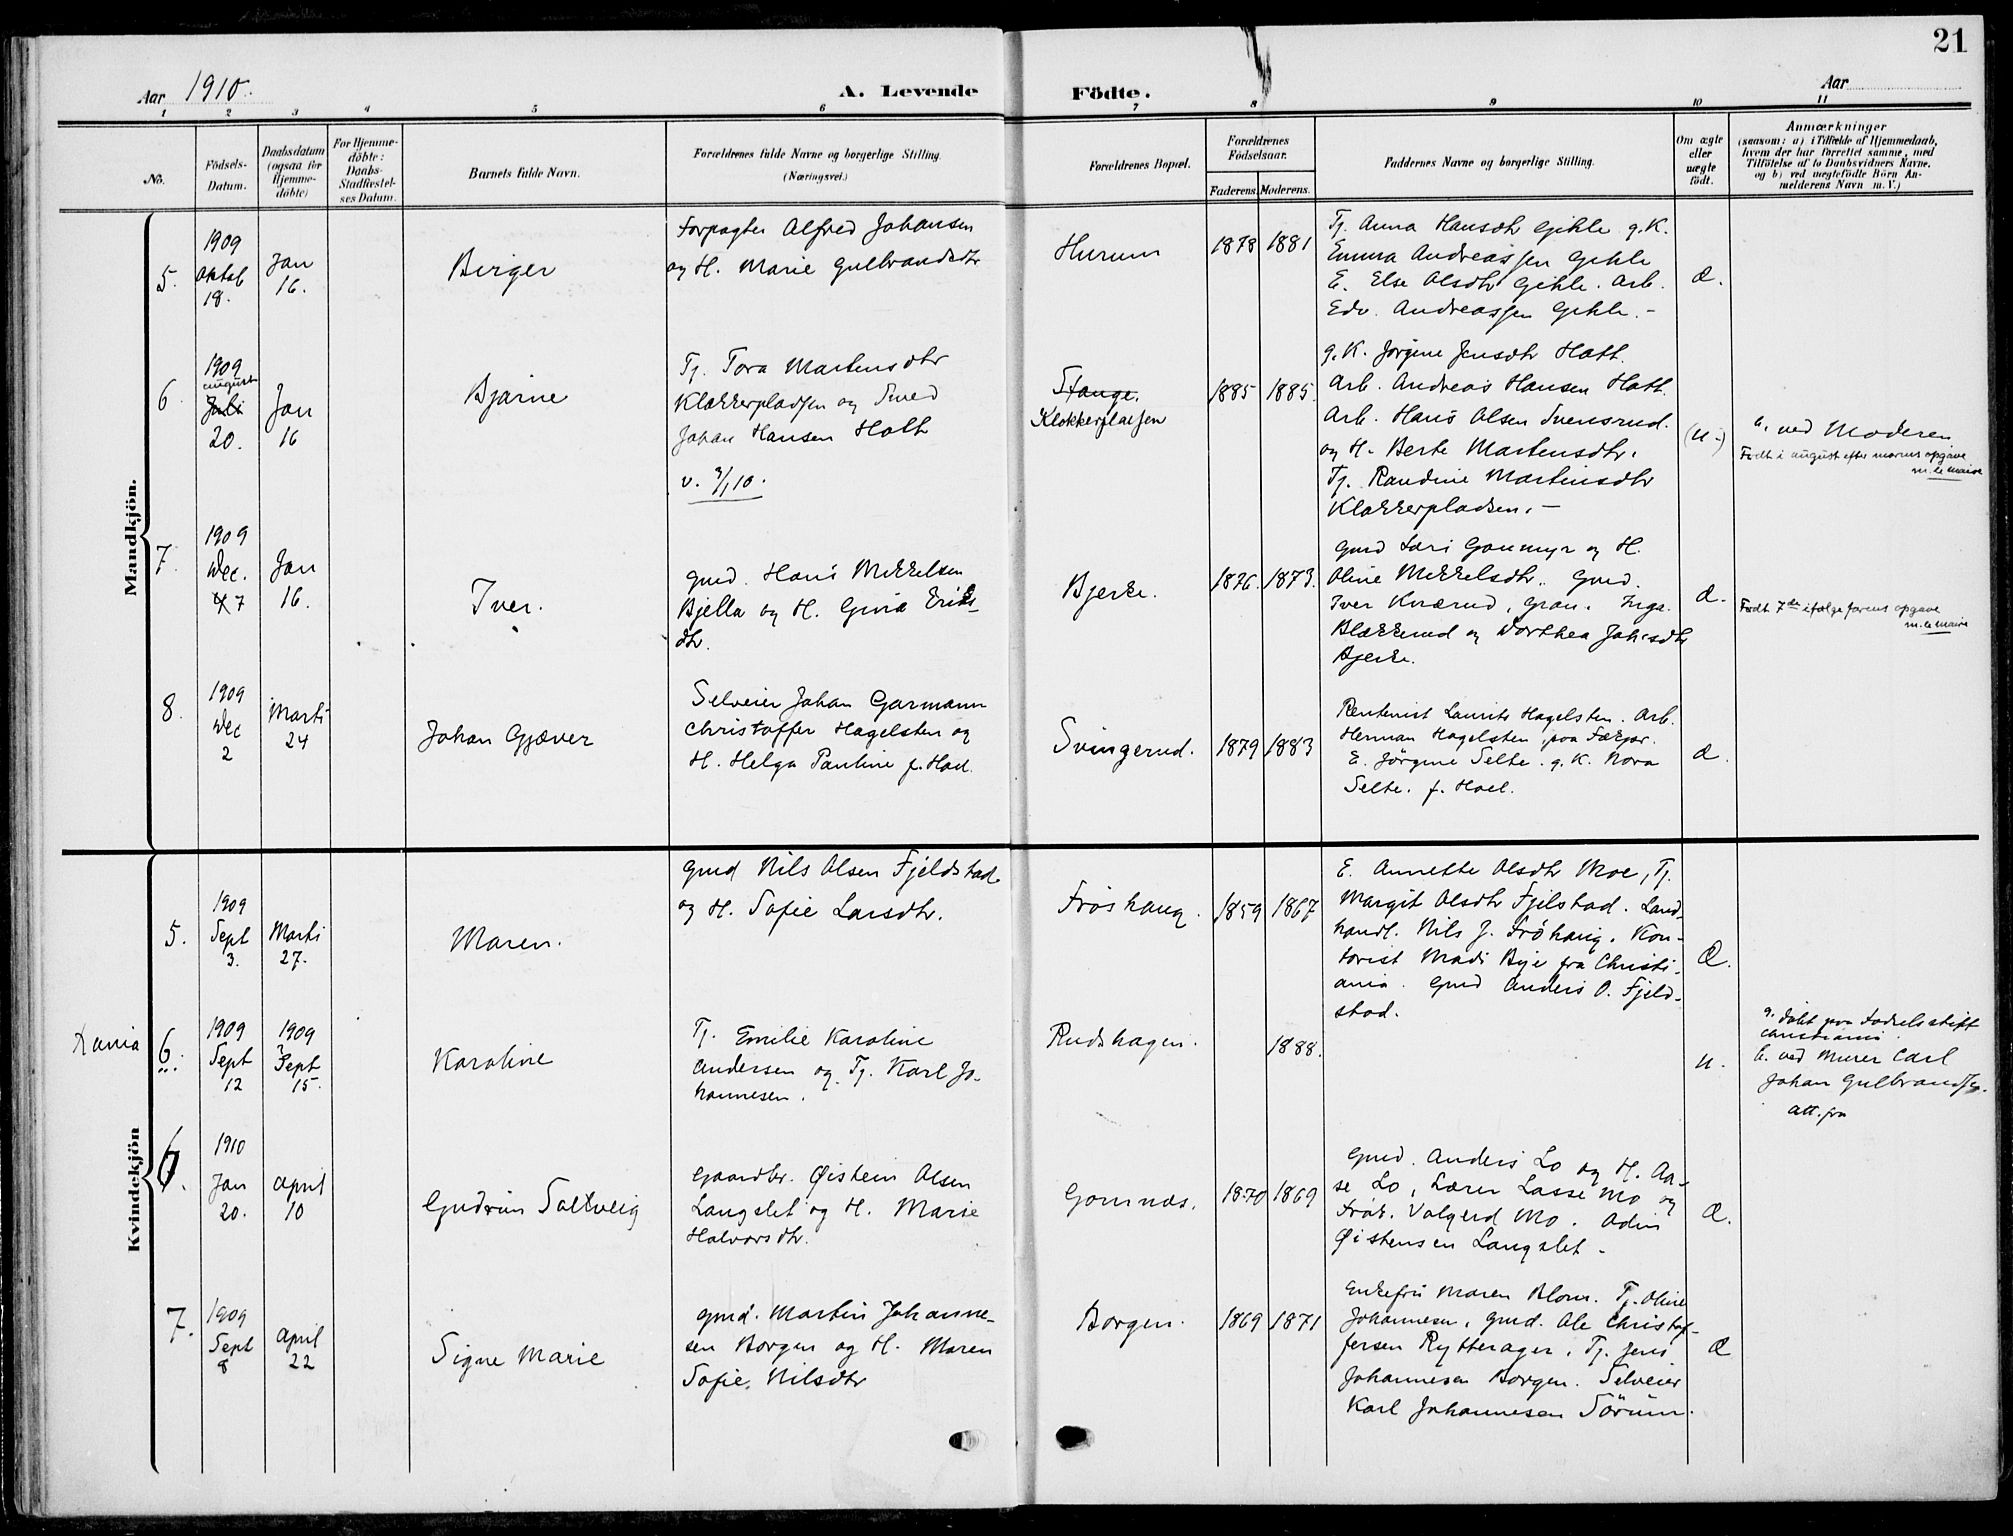 21
Aar 1910.
A. Levende Födte.
Aar
1 2 3 4 5 6 7 8 9 10 11
No.
Födsels-
Datum.
Daabsdatum
(ogsaa för
Hjemme-
döbte)
For Hjemme-
döbte:
Daabs-
Stadfæstel-
ses Datum.
Barnets fulde Navn.
Forældrenes fulde Navne og borgerlige Stilling.
(Næringsvei.)
Forældrenes Bopæl.
Forældrenes
Födselsaar.
Faderens. Moderens.
Faddernes Navne og borgerlige Stilling.
Om ægte
eller
uægte
födt.
Anmærkninger
(saasom: a) i Tilfælde af Hjemmedaab,
hvem der har forrettet samme, med
Tilföielse af to Daabsvidners Navne,
og b) ved uægtefödte Börn An-
melderens Navn m. V.)
Mandkjön.
5.
1909
Oktob
18.
Jan
16.
Birger
Forpagter Alfred Johansen
og H. Marie Gulbrandsdtr
Hurum
1878 1881
Tj. Anna Hansdtr Gihle g.K.
Emma Andreassen Gihle
E. Else Olsdtr Gihle. Arb.
Edv. Andreassen Gihle.-
Æ.
6
1909
august
Juli
20.
Jan
16
Bjarne
Tj. Tora Martinsdtr
Klokkerpladsen og Smed
Johan Hansen Hoth
v. 3/1 10.
Stange.
Klokkerplassen
1885 1885.
g.K. Jörgine Jensdtr Hoth.
Arb. Andreas Hansen Hoth.
Arb. Hans Olsen Svensrud.
og H. Berte Martinsdtr.
Tj. Randine Martinsdtr
Klokkerpladsen.-
(u.)
b. ved Moderen
Født i august efter morens opgave
m. le maire
7.
1909
Dec.
7
Jan
16.
Iver.
Gmd. Hans Mikkelsen
Bjella og H. Eriks-
dtr.
Bjerke.
1876. 1873.
Gmd Lars Gonmyr og H.
Oline Mikkelsdtr. Gmd.
Iver Kværud, Gran. Inga
Blækkerud og Dorthea Johsdtr
Bjerke.
Æ.
Født 7de ifølge farens opgave
m. le maire
8.
1909
Dec
2
Marts
24
Johan Gjæver
Selveier Johan Garmann
Christoffer Hagelsten og
H. Helga Pauline f. Hoel.
Svingerud.
1879 1883
Rentenist Laurits Hagelsten. Arb.
Herman Hagelsten, paa
E. Jörgine Selte. g.K. Nora
Selte. f. Hoel.
Æ.
Kvindekjön
5.
1909
Sept
3.
Marts
27.
Maren.
Gmd Nils Olsen Fjeldstad
og H. Sofie Larsdtr.
Fröshaug.
1859 1867
E. Annette Olsdtr Moe, Tj.
Margit Olsdtr Fjelstad. Land-
handl. Nils J. Fröhaug. Kon-
torist Mads Bye fra Christi-
ania. Gmd Anders O. Fjeld-
stad.
Æ.
Xania
6.
1909
Sept
12
1909
Sept
15.
Karoline
Tj. Emilie Karoline
Andersen og Tj. Karl Jo-
hannesen.
Rudshagen.
1888.
u.
a. døbt paa Fødselsstift
Christiania.
b. ved Murer Carl
Johan Gulbrandsen.
att. fra
6.
1910
Jan
20.
April
10
Gudrun Sollveig
Gaardbr. Øistein Olsen
Langslet og H. Marie
Halvorsdtr.
Gomnæs.
1870 1869
Gmd. Anders Lo og H. Aa-
se Lo, Lærer Lasse Mo og
Frøk. Valgerd Mo. Odin
Øistensen Langslet.
Æ.
7.
1909
Sept
8
April
22
Signe Marie
Gmd. Martin Johanne-
sen Borgen og H. Maren
Sofie Nilsdtr
Borgen.
1869 1871
Enkefru Maren Blom. Tj. Oline
Johannesen. Gmd. Ole Christof-
fersen Rytterager. Tj. Jens
Johannesen Borgen. Selveier
Karl Johannesen Sörum.
Æ